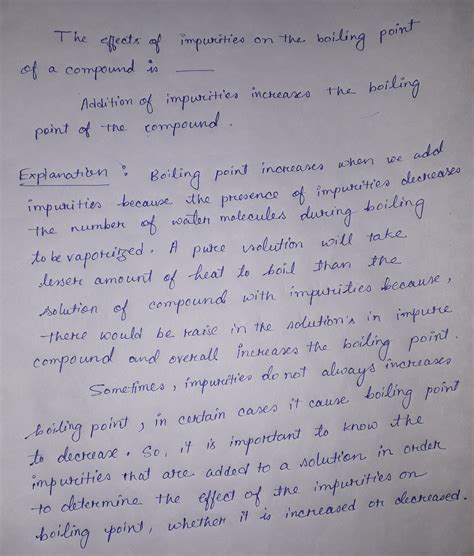 The effects of impurities on the boiling point
of a compound is ___
Addition of impurities increases the boiling
point of the compound.
Explanation : Boiling point increases when we add
impurities because the presence of impurities decreases
the number of water molecules during boiling
to be vaporized. A pure solution will take
lesser amount of heat to boil than the
solution of compound with impurities because,
there would be raise in the solution's in impure
compound and overall increases the boiling point.
Sometimes, impurities do not always increases
boiling point, in certain cases it cause boiling point
to decrease. So, it is important to know the
impurities that are added to a solution in order
to determine the effect of the impurities on
boiling point, whether it is increased or decreased.